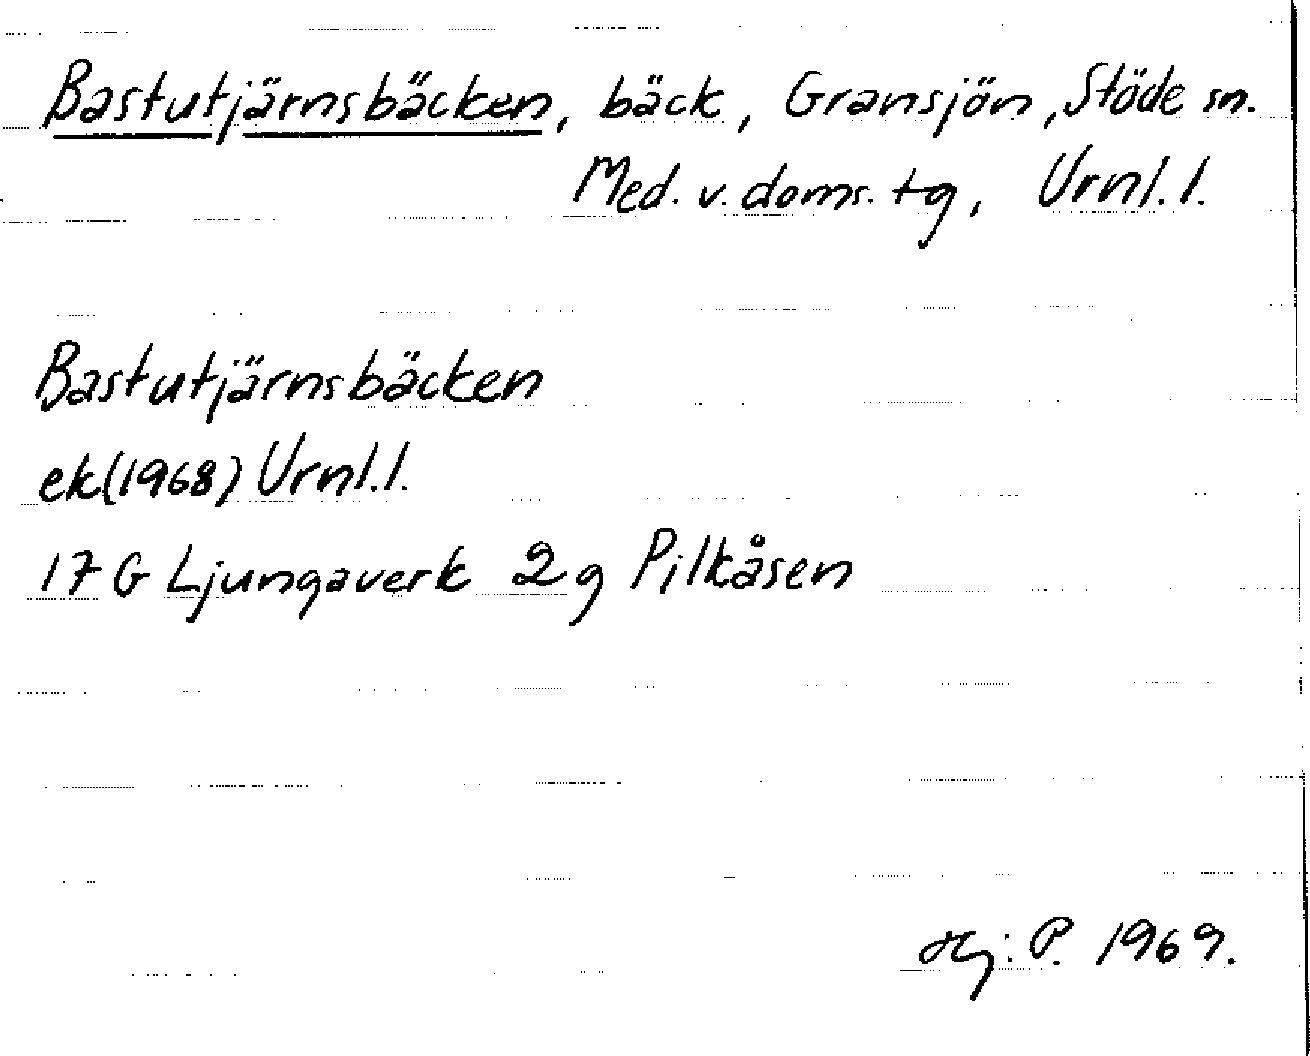 Bastutjärnsbäcken, bäck, Gransjön, Stöde sn.
Med. v. doms. tg, Urnl. l.
Bastutjärnsbäcken
ek(1968) Urnl. l.
17 G Ljungaverk 2g Pilkåsen
Hj. P. 1969.